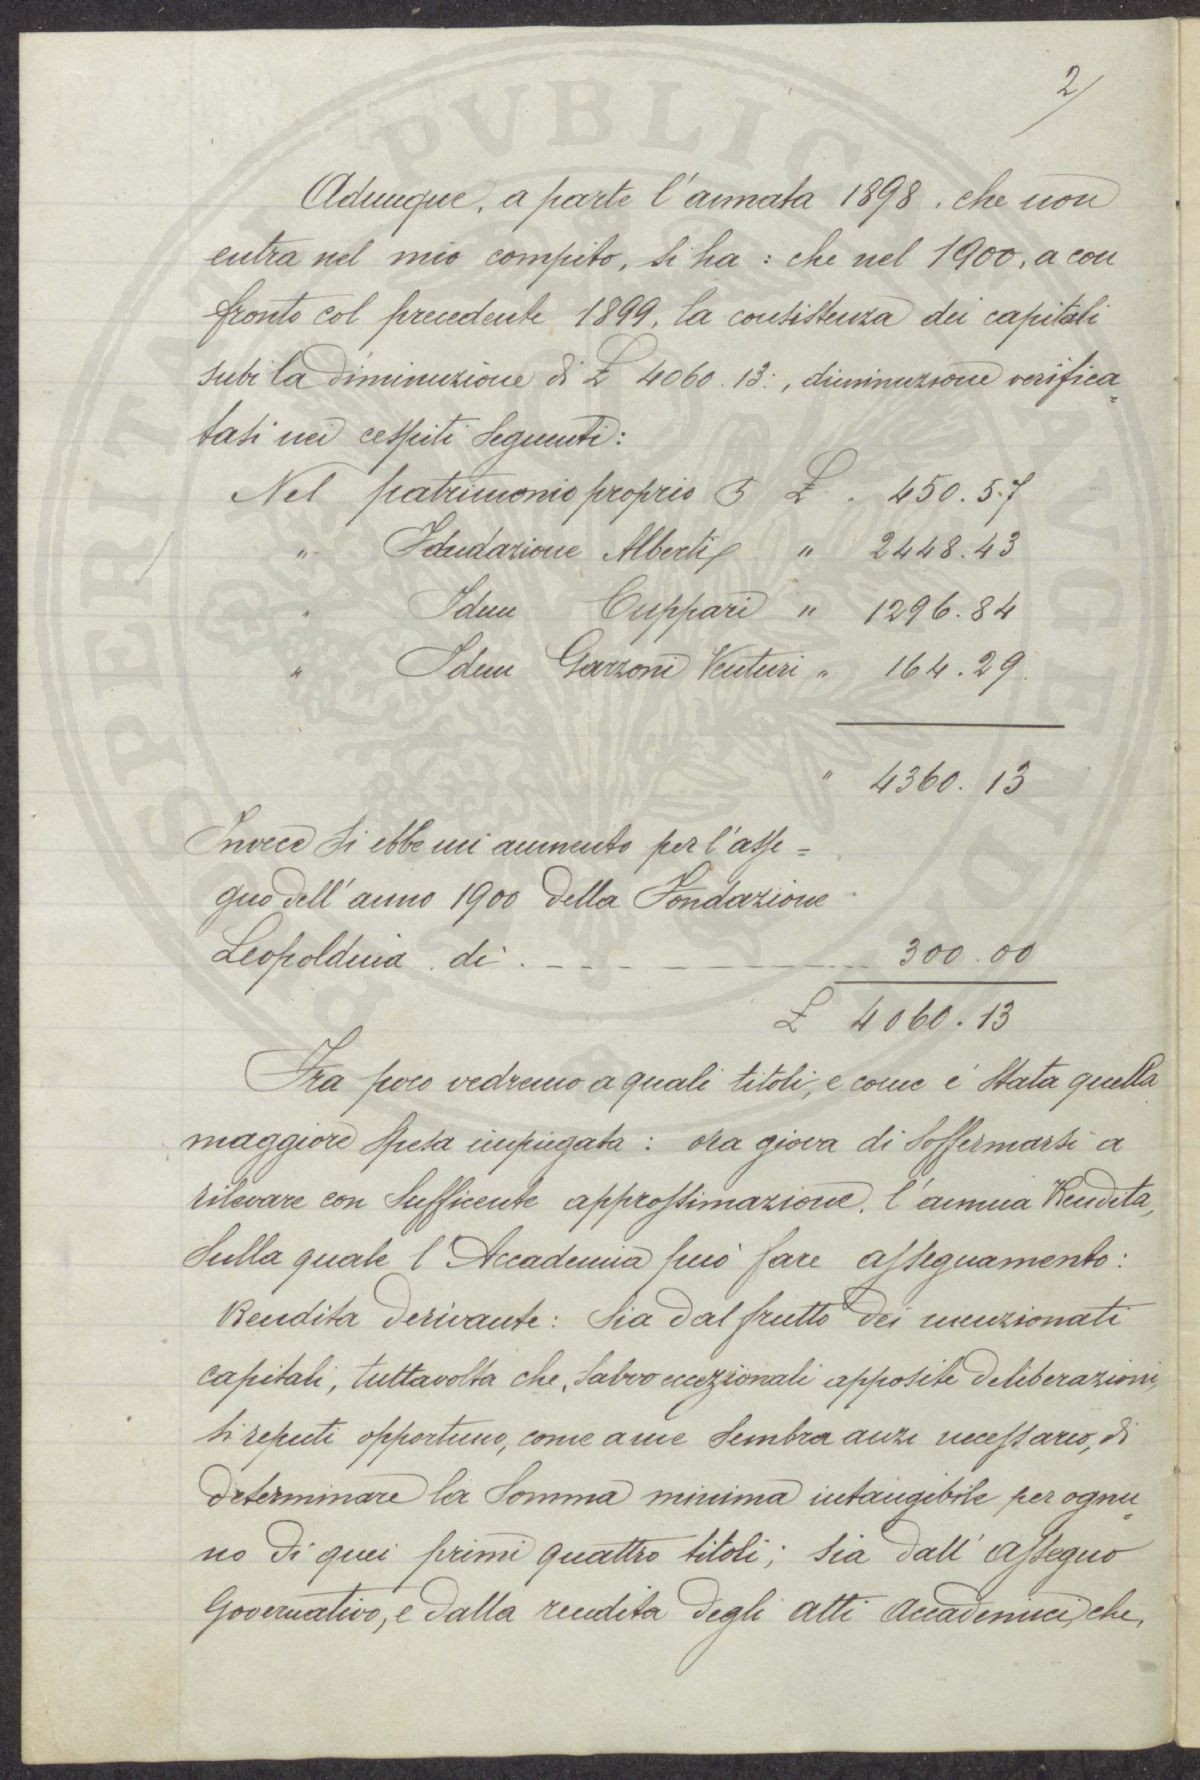 2/
Adunque, a parte l'annata 1898, che non
entra nel mio compito, si ha: che nel 1900, a con
fronto col precedente 1899, la consistenza dei capitali
subì la diminuzione di £ 4060.13:, diminuzione verifica=
tasi nei cespiti seguenti:
Nel patrimonio proprio £. 450.57
" Fondazione Alberti " 2448.43
" Idem Cuppari " 1296.84
" Idem Garzoni Venturi " 164.29.
" 4360.13
Invece si ebbe un aumento per l'asse=
gno dell'anno 1900 della Fondazione
Leopoldina di . - - - - - - - 300.00
£ 4060.13
Fra poco vedremo a quali titoli, e come è stata quella
maggiore spesa impiegata: ora giova di soffermarsi a
rilevare con sufficente approssimazione, l'annua Rendita,
sulla quale l'Accademia può fare assegnamento:
Rendita derivante: sia dal frutto dei menzionati
capitali, tuttavolta che, salvo eccezionali apposite deliberazioni,
si reputi opportuno, come a me sembra anzi necessario, di
determinare la somma minima intangibile per ognu=
no di quei primi quattro titoli; sia dall'assegno
Governativo, e dalla rendita degli atti Accademici, che,
PVBLICAE
PROSPERITATI AVGENDAE